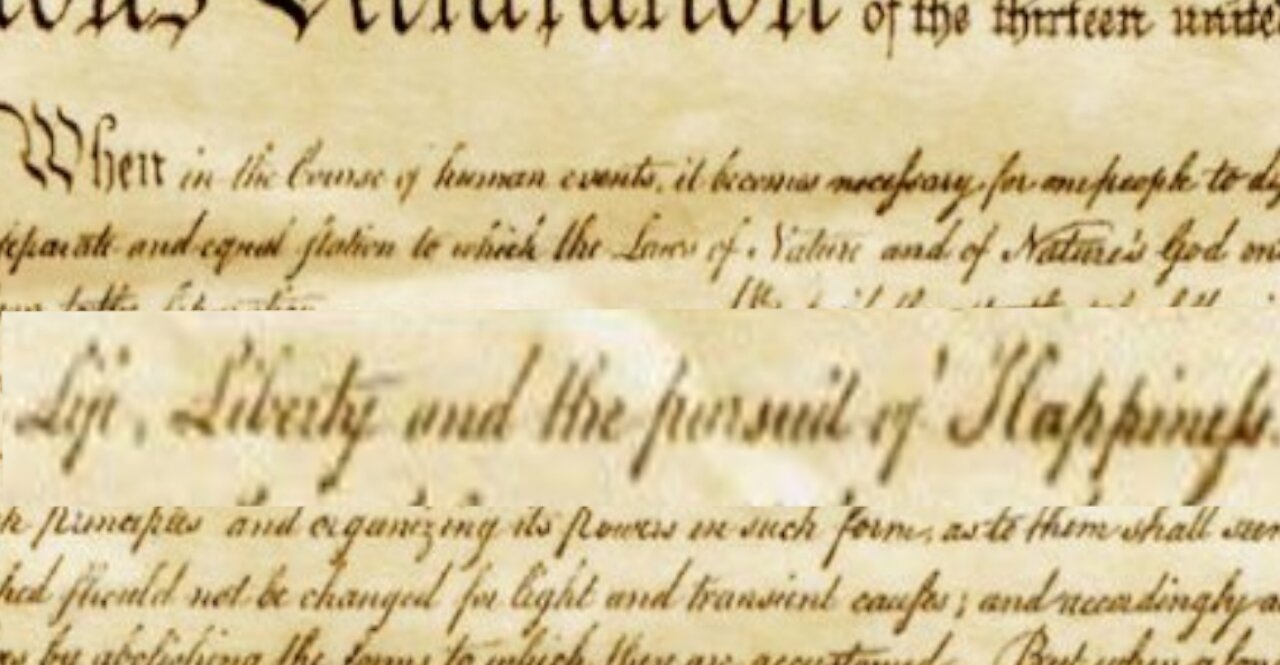 Declaration of the thirteen unite
When in the Course of human events, it becomes necessary for one people to
separate and equal station to which the Laws of Nature and of Nature's God
We
Life, Liberty and the pursuit of Happiness.
principles and organizing its powers in such form, as to them shall seem
should not be changed for light and transient causes; and accordingly
by abolishing the forms to which they are accustomed. But when a long